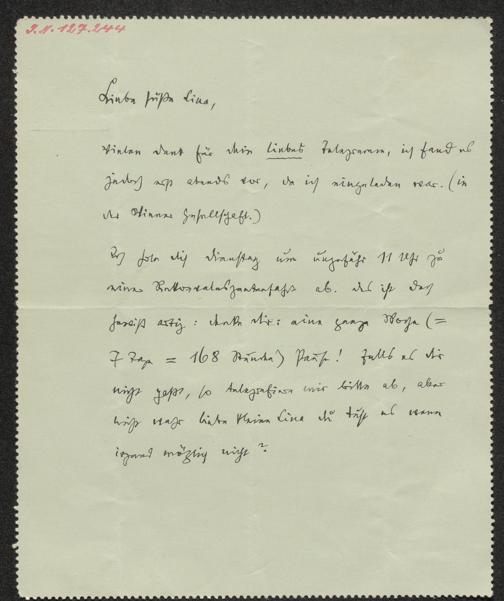 J.N. 127.244
Liebe süße Lina,
vielen dank für dein liebes Telegramm, ich fand es
jedoch erst abends vor, da ich eingeladen war. (in
der Wiener Gesellschaft.)
Ich hole dich dienstag um ungefähr 11 Uhr zu
einer Rekonvaleszentenfahrt ab. das ist doch
gewiß artig: denke dir: eine ganze Woche (=
7 Tage = 168 Stunden) Pause! Falls es dir
nicht geht, so telegrafiere mir bitte ab, aber
nicht wahr liebe kleine Lina du tust es wenn
irgend möglich nicht?